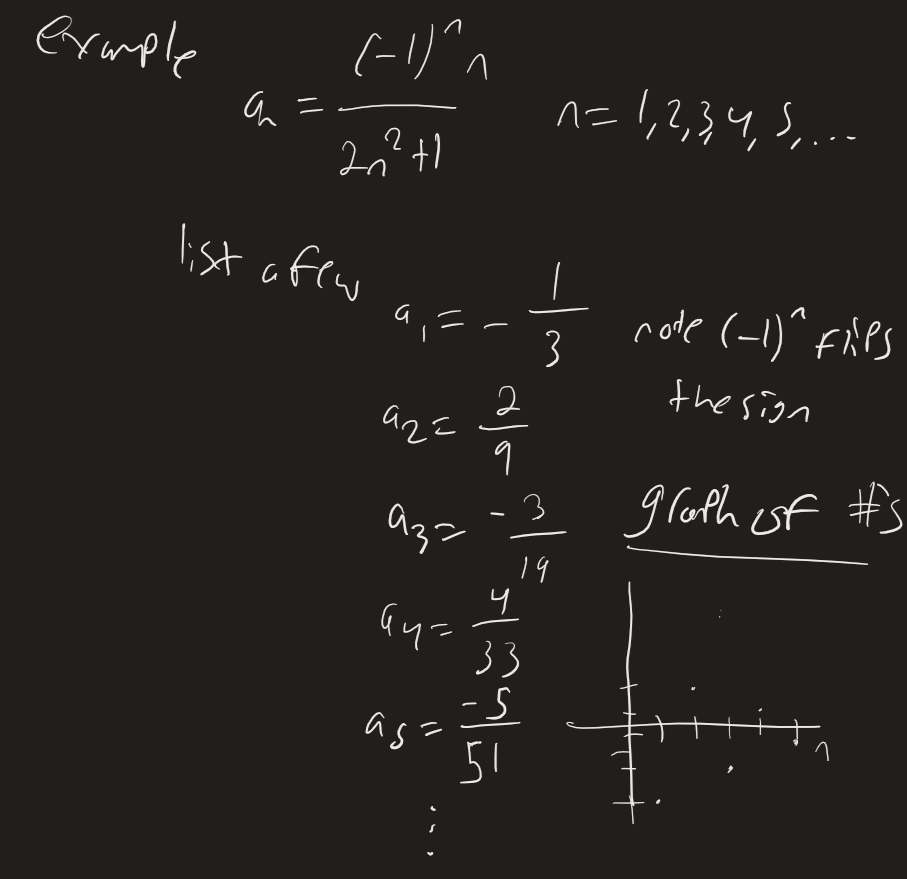 example
aₙ = (-1)ⁿ n / (2n² + 1)    n = 1, 2, 3, 4, 5, ...
list a few
a₁ = - 1/3    note (-1)ⁿ flips
the sign
a₂ = 2/9
a₃ = -3/19    graph of #s
a₄ = 4/33
a₅ = -5/51
n
⋮